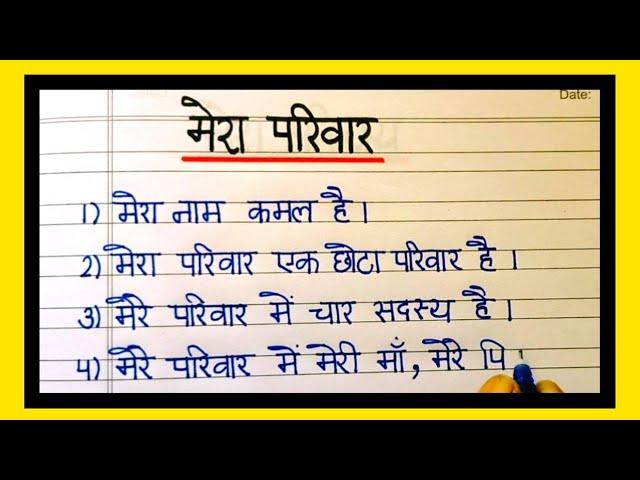 Date:
मेरा परिवार
1) मेरा नाम कमल है।
2) मेरा परिवार एक छोटा परिवार है।
3) मेरे परिवार में चार सदस्य है।
4) मेरे परिवार में मेरी माँ, मेरे पि